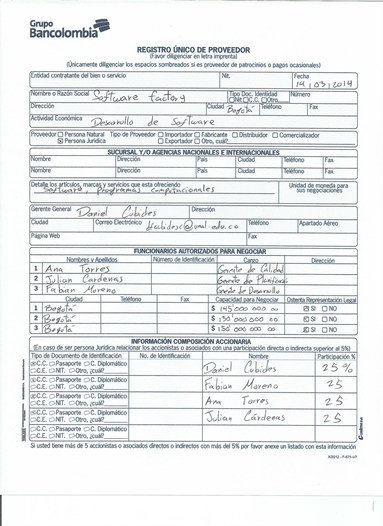 Grupo
Bancolombia
REGISTRO ÚNICO DE PROVEEDOR
(Favor diligenciar en letra imprenta)
(Únicamente diligenciar los espacios sombreados si es proveedor de patrocinios o pagos ocasionales)
Entidad contratante del bien o servicio Nit. Fecha
14/03/2014
Nombre o Razón Social Software factory Tipo Doc. Identidad Número
Nit C.C Otro
Dirección Ciudad Bogotá Teléfono Fax
Actividad Económica Desarrollo de Software
Proveedor Persona Natural Tipo de Proveedor Importador Fabricante Distribuidor Comercializador
Persona Jurídica Exportador Otro, cuál?
SUCURSAL Y/O AGENCIAS NACIONALES E INTERNACIONALES
Nombre Dirección País Ciudad Teléfono Fax
Nombre Dirección País Ciudad Teléfono Fax
Detalle los artículos, marcas y servicios que esta ofreciendo Unidad de moneda para
Software, programas computacionales sus negociaciones
Gerente General Daniel Cubides Dirección
Ciudad Correo Electrónico Teléfono Apartado Aéreo
Página Web Fax
FUNCIONARIOS AUTORIZADOS PARA NEGOCIAR
Nombres y Apellidos Número de Identificación Cargo Dirección
1 Ana Torres Gerente de Calidad
2 Julian Cardenas Gerente de
3 Fabian Moreno Gerente de Desarrollo
Ciudad Teléfono Fax Capacidad para Negociar Ostenta Representación Legal
1 Bogotá $ 145'000 000 00 SI NO
2 Bogotá $ 150'000 000 00 SI NO
3 Bogotá $ 150'000 000 00 SI NO
INFORMACIÓN COMPOSICIÓN ACCIONARIA
(En caso de ser persona Jurídica relacionar los accionistas o asociados con una participación directa o indirecta superior al 5%)
Tipo de Documento de Identificación No. de Identificación Nombre Participación %
C.C. Pasaporte C. Diplomático
C.E. NIT. Otro, ¿cuál? Daniel Cubides 25%
C.C. Pasaporte C. Diplomático
C.E. NIT. Otro, ¿cuál? Fabian Moreno 25
C.C. Pasaporte C. Diplomático
C.E. NIT. Otro, ¿cuál? Ana Torres 25
C.C. Pasaporte C. Diplomático
C.E. NIT. Otro, ¿cuál? Julian Cárdenas 25
C.C. Pasaporte C. Diplomático
C.E. NIT. Otro, ¿cuál?
Si usted tiene más de 5 accionistas o asociados directos o indirectos con más del 5% por favor anexe un listado con esta información